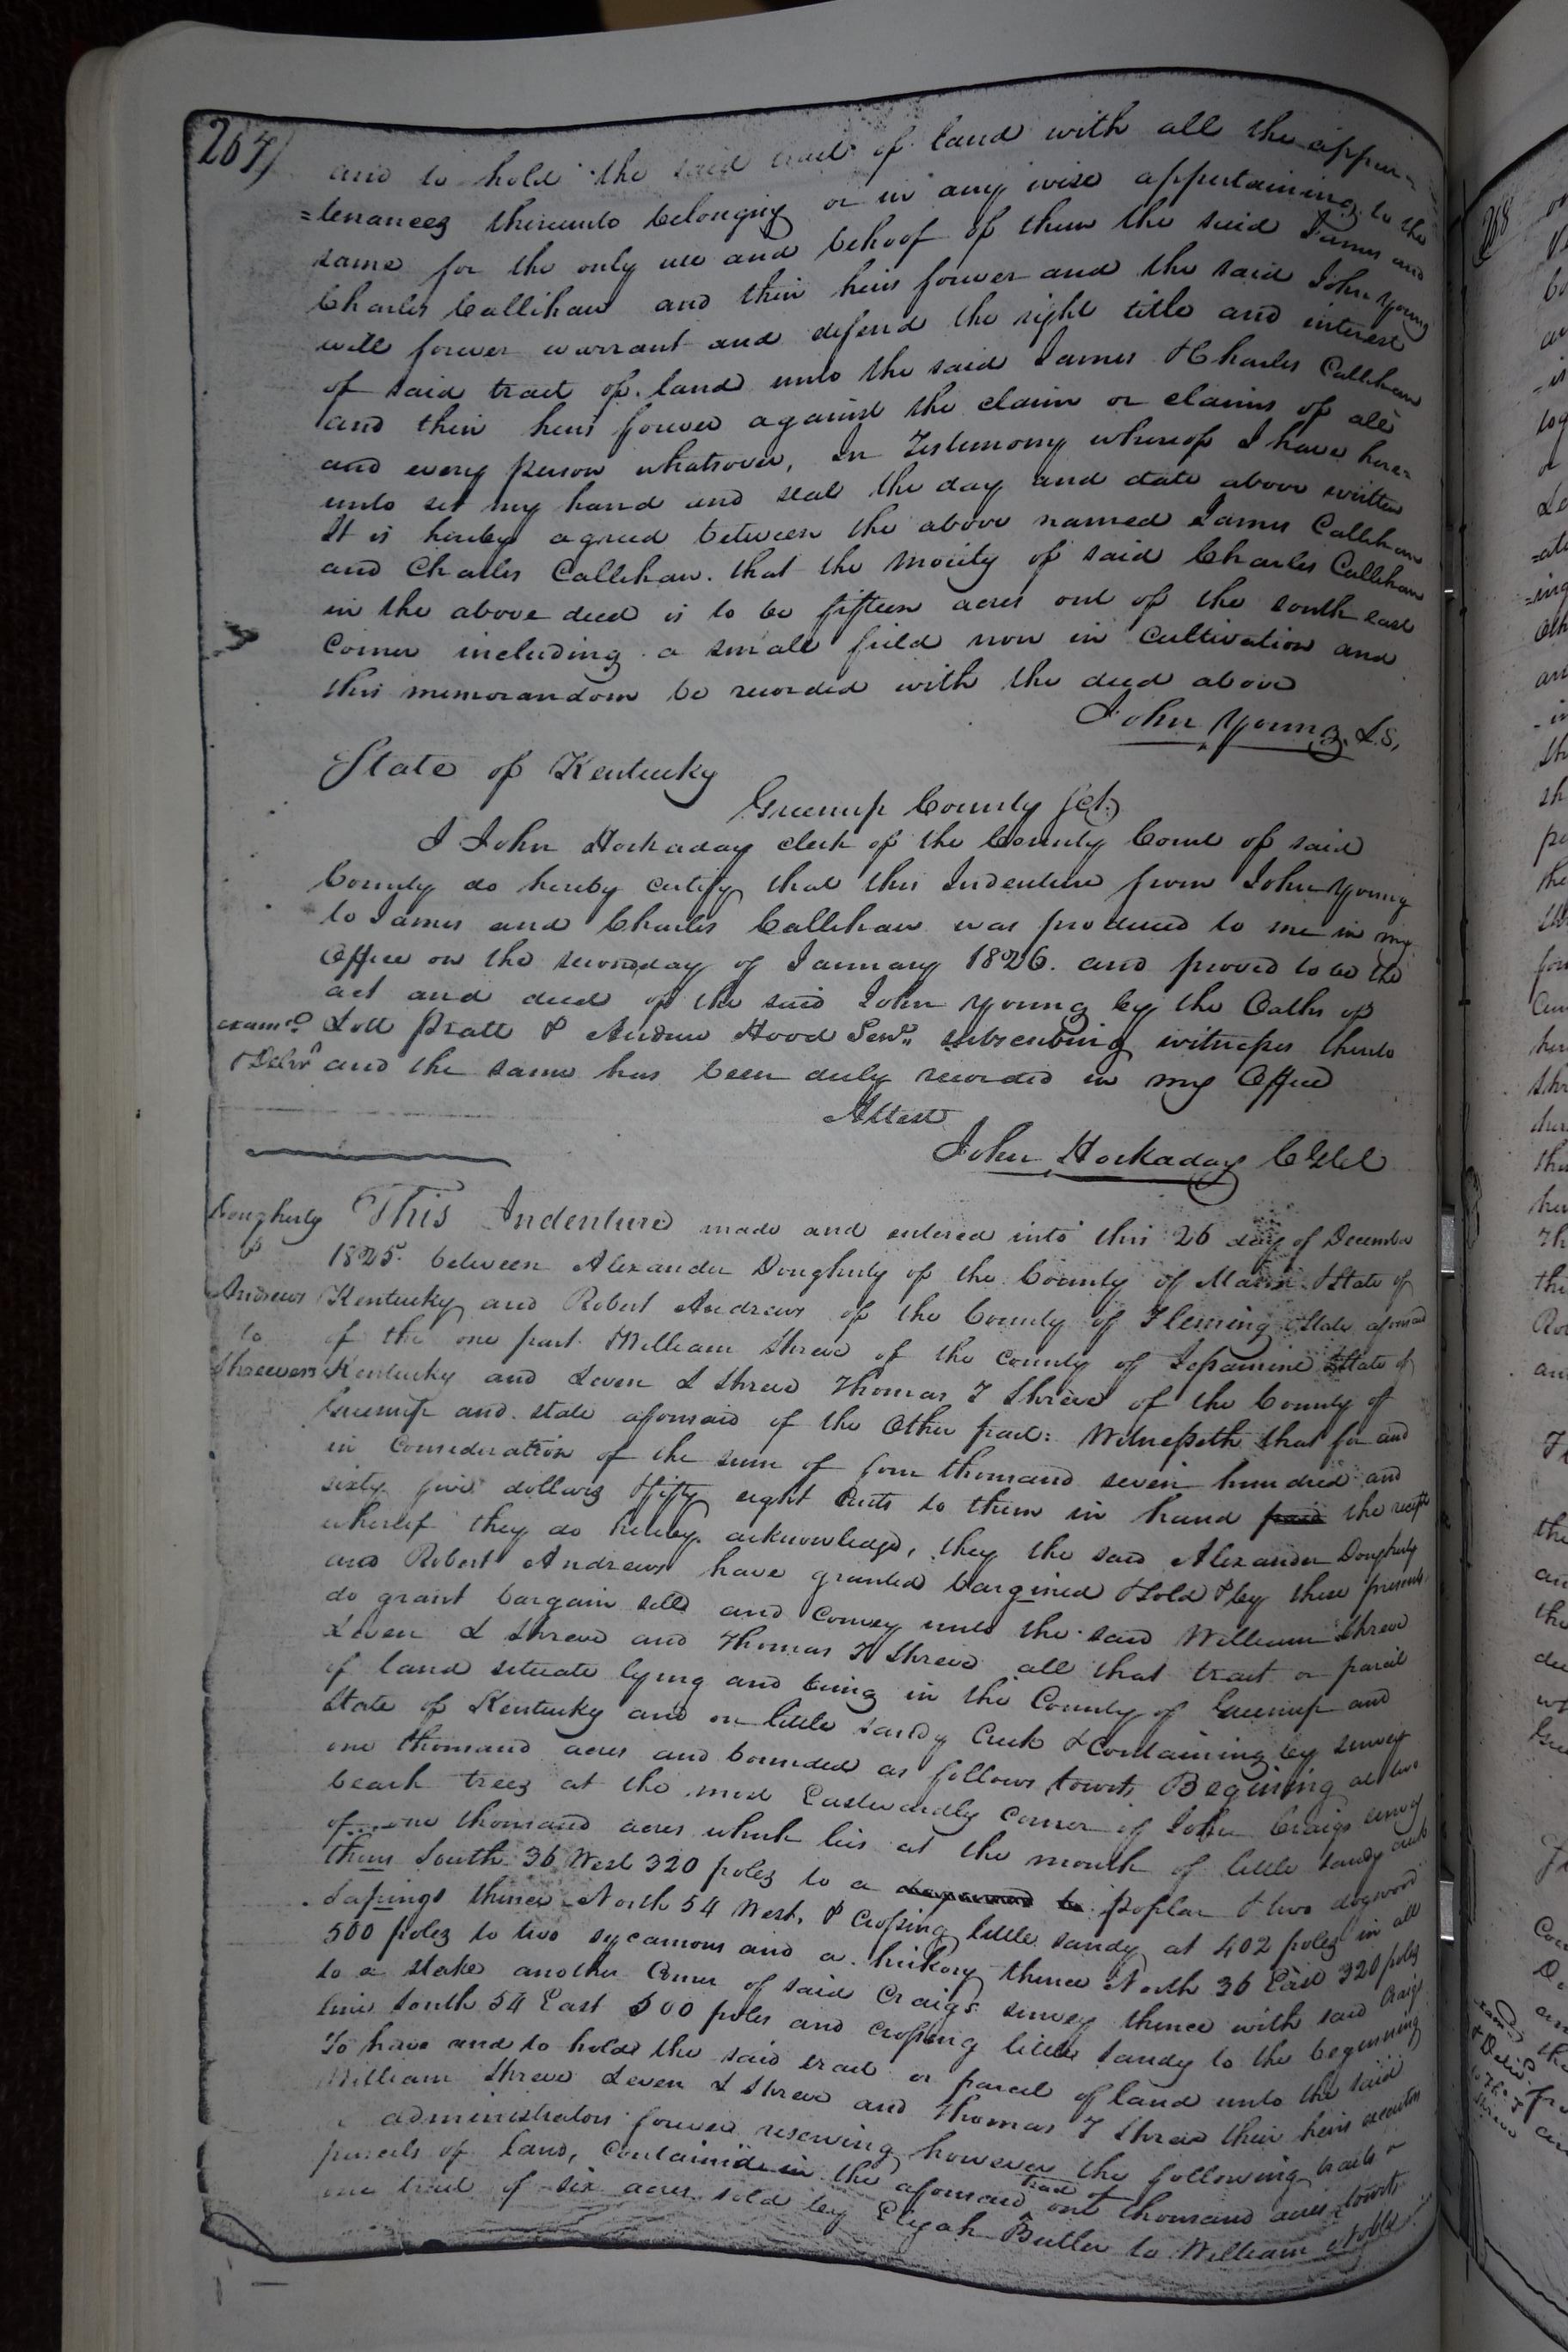 267
and to hold the said tract of land with all the appur=
=tenances thereunto belonging or in any wise appertaining to the
same for the only use and behoof of them the said James and
Charles Callihan and their heirs forever and the said John Young
will forever warrant and defend the right title and interest
of said tract of land unto the said James & Charles Callihan
and their heirs forever against the claim or claims of all
and every person whatsover, In Testimony whereof I have here=
unto set my hand and seal the day and date above written
It is hereby agreed between the above named James Callihan
and Charles Callihan. that the Moiety of said Charles Callihan
in the above deed is to be fifteen acres out of the south east
Corner including a small field now in Cultivation and
this memorandom be recorded with the deed above
John Young. L.S.
State of Kentucky
Greenup County Sct.
I John Hockaday clerk of the County Court of said
County do hereby certify that this Indenture from John Young
to James and Charles Callihan was produced to me in my
Office on the second day of January 1826. and proved to be the
act and deed of the said John Young by the Oaths of
exam.d Lott Pratt & Andrew Hood Sen.r subscribing witnesses thereto
& Deliv.d and the same has been duly recorded in my Office
Attest
John Hockaday
Dougherty This Indenture made and entered into this 26 day of December
& 1825. between Alexander Dougherty of the County of Mason & State of
Andrews Kentucky and Robert Andrews of the County of Fleming & State aforesaid
to of the one part William Shreve of the County of Jessamine & State of
Shreeves Kentucky and Leven L Shreve Thomas T Shreve of the County of
Greenup and state aforesaid of the Other part: Witnesseth that for and
in Consideration of the sum of four thousand seven hundred and
sixty five dollars & fifty eight Cents to them in hand paid the receipt
whereof they do hereby acknowledge, they the said Alexander Dougherty
and Robert Andrews have granted bargined & sold & by these presents
do grant bargain sell and Convey unto the said William Shreve
Leven L Shreve and Thomas T Shreve all that tract or parcil
of land situate lying and being in the County of Greenup and
State of Kentucky and on little sandy Creek & Containing by survey
one thousand acres and bounded as follows towit, Begining at two
beach trees at the most Eastwardly Corner of John Craigs survey
of one thousand acres which lies at the mouth of little sandy creek
thens South 36 West 320 poles to a dogwood to poplar & two dogwood
Sapings thence North 54 West, & Crossing little sandy at 402 poles in all
500 poles to two sycamous and a hickory thence North 36 East 320 poles
to a stake another Corner of said Craigs survey thence with said Craigs
line South 54 East 500 poles and crossing little sandy to the beginning
To have and to hold the said tract or parcel of land unto the said
William Shreve Leven L Shreve and Thomas T Shreve their heirs executors
administrators forever reserving however the following tracts or
parcels of land, Contained in the aforesaid tract of one thousand acres towit
one tract of six acres sold by Elijah Butler to William Nobles